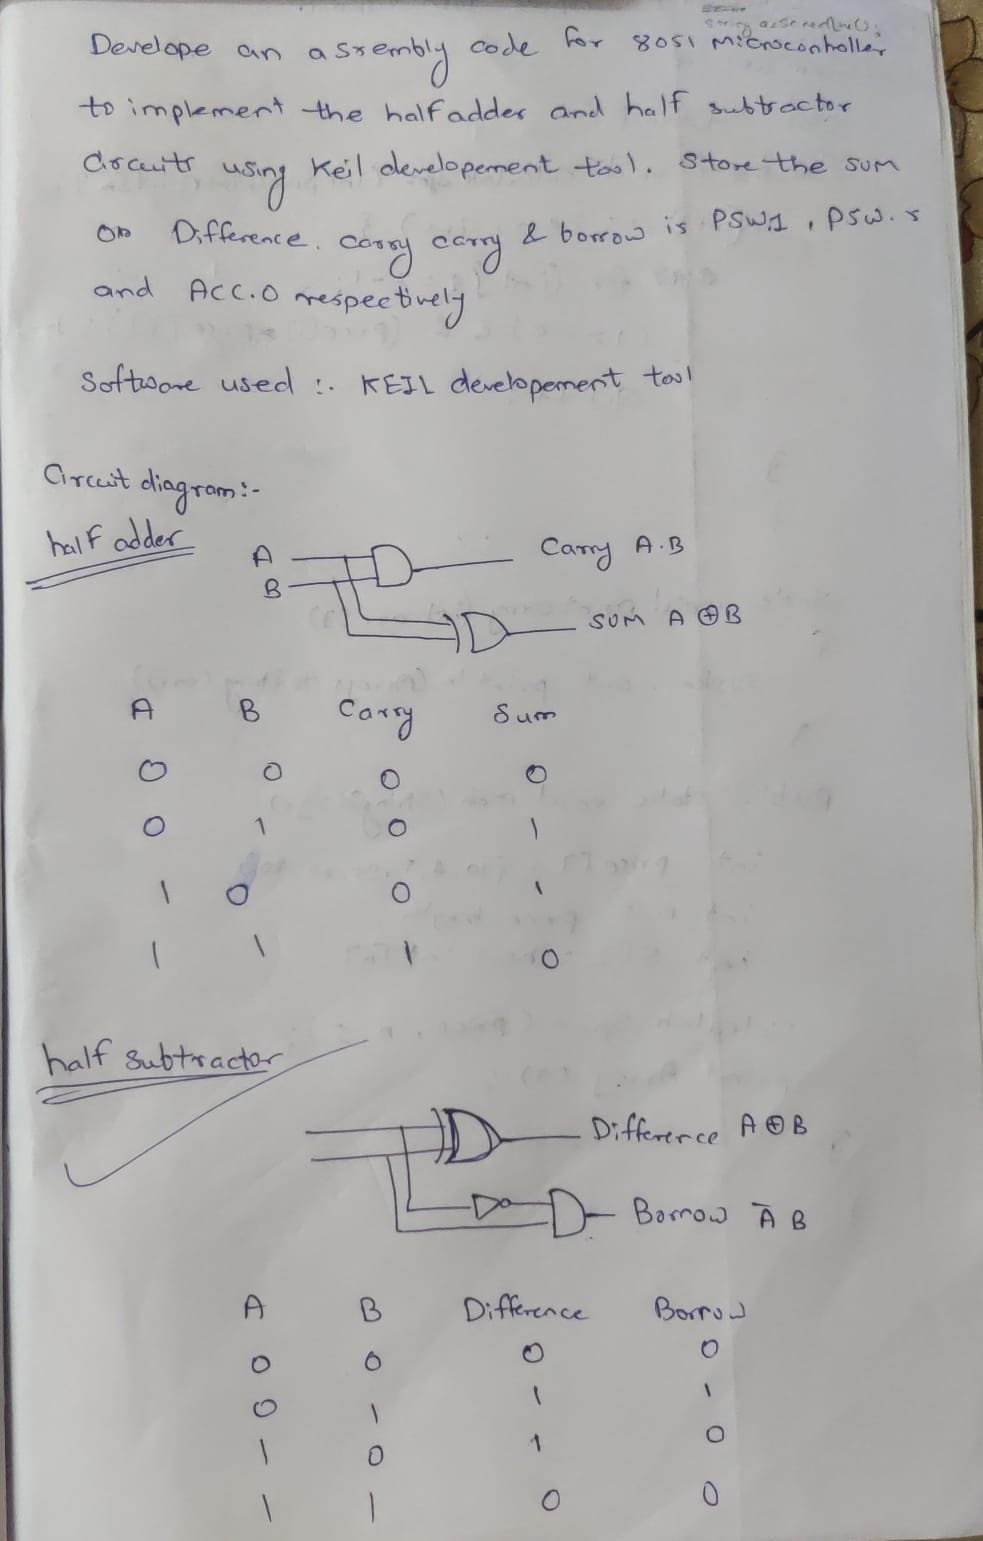 Develope an assembly code for 8051 Microcontroller
to implement the half adder and half subtractor
Circuits using Keil developement tool. Store the sum
or Difference, carry carry & borrow is PSW.1, PSW.5
and ACC.0 respectively
Software used :. KEIL developement tool
Circuit diagram:-
half adder
A
Carry A.B
B
SUM A ⊕ B
A B Carry Sum
0 0 0 0
0 1 0 1
1 0 0 1
1 1 1 0
half subtractor
Difference A ⊕ B
Borrow Ā B
A B Difference Borrow
0 0 0 0
0 1 1 1
1 0 1 0
1 1 0 0